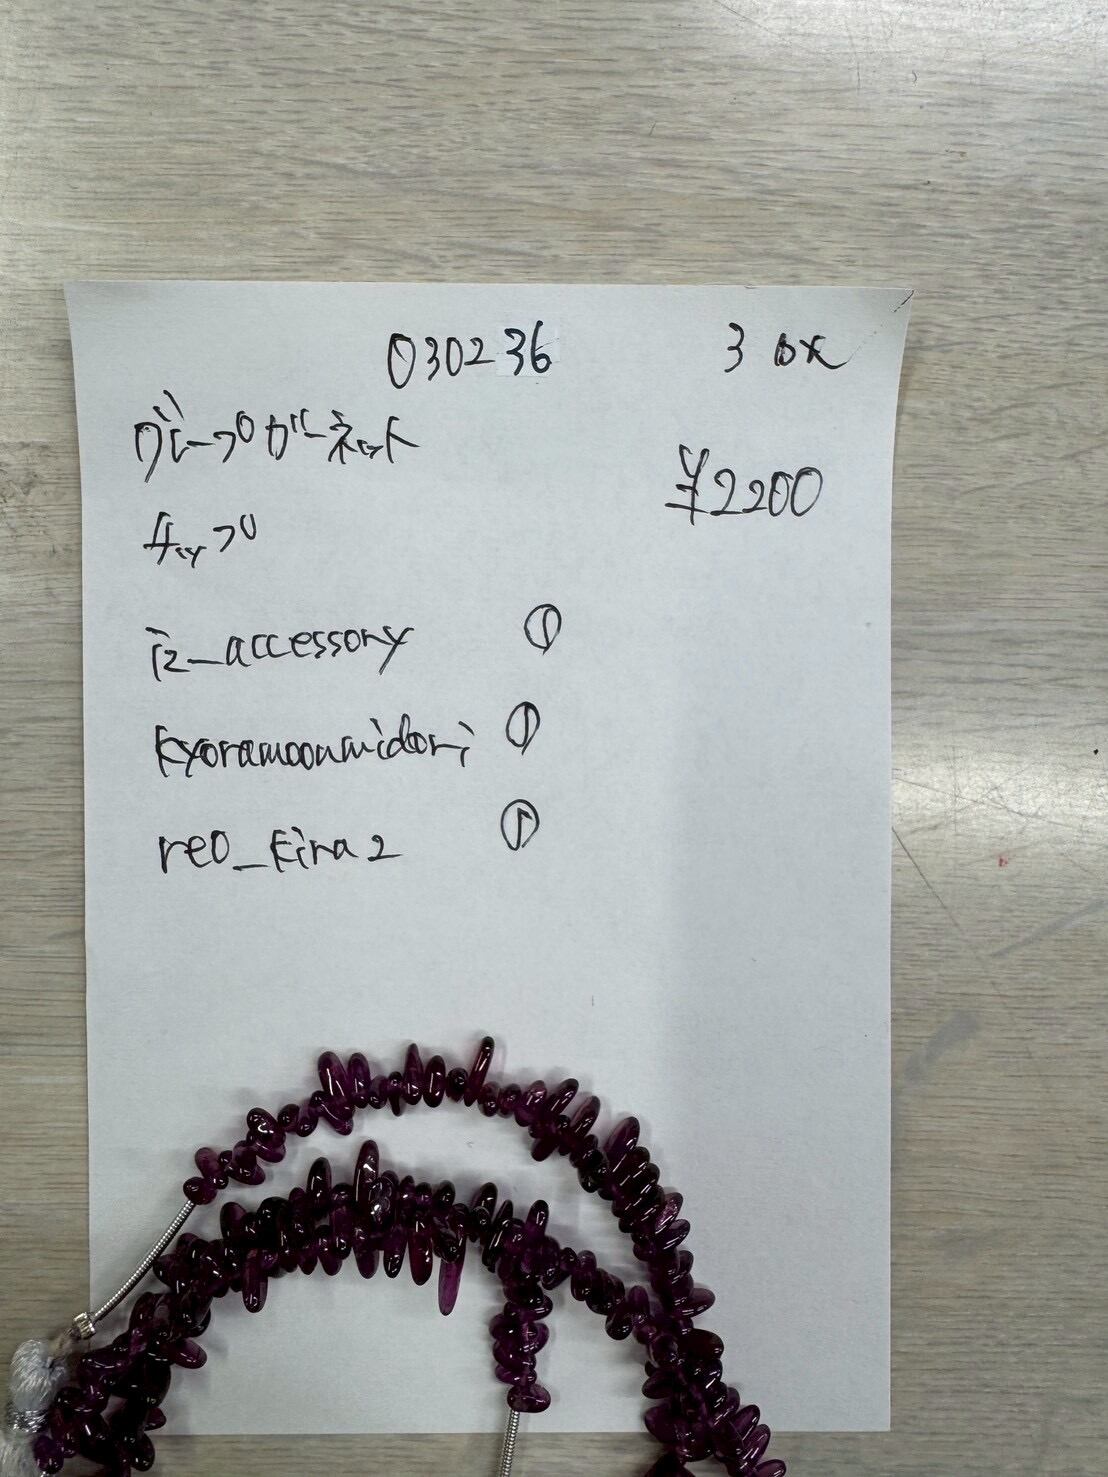 030236 3 ox
グレープガーネット
¥2200
チップ
iz_accessory ①
kyoramoonmidori ①
reo_kira2 ①